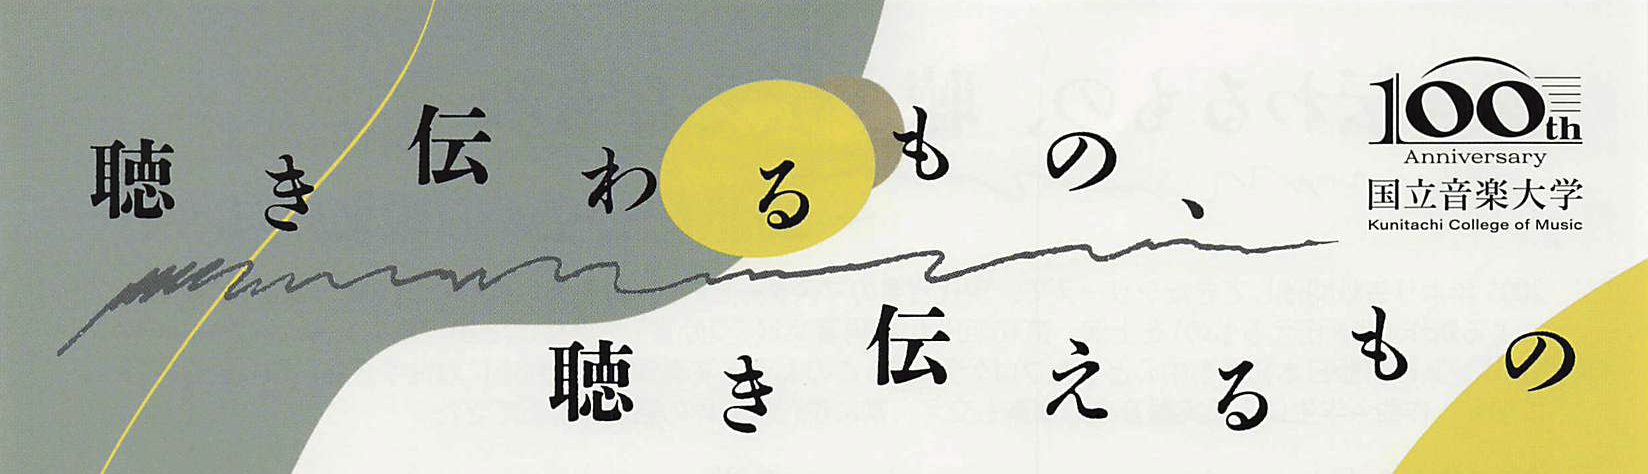 聴き伝わるもの、
聴き伝えるもの
100th
Anniversary
国立音楽大学
Kunitachi College of Music